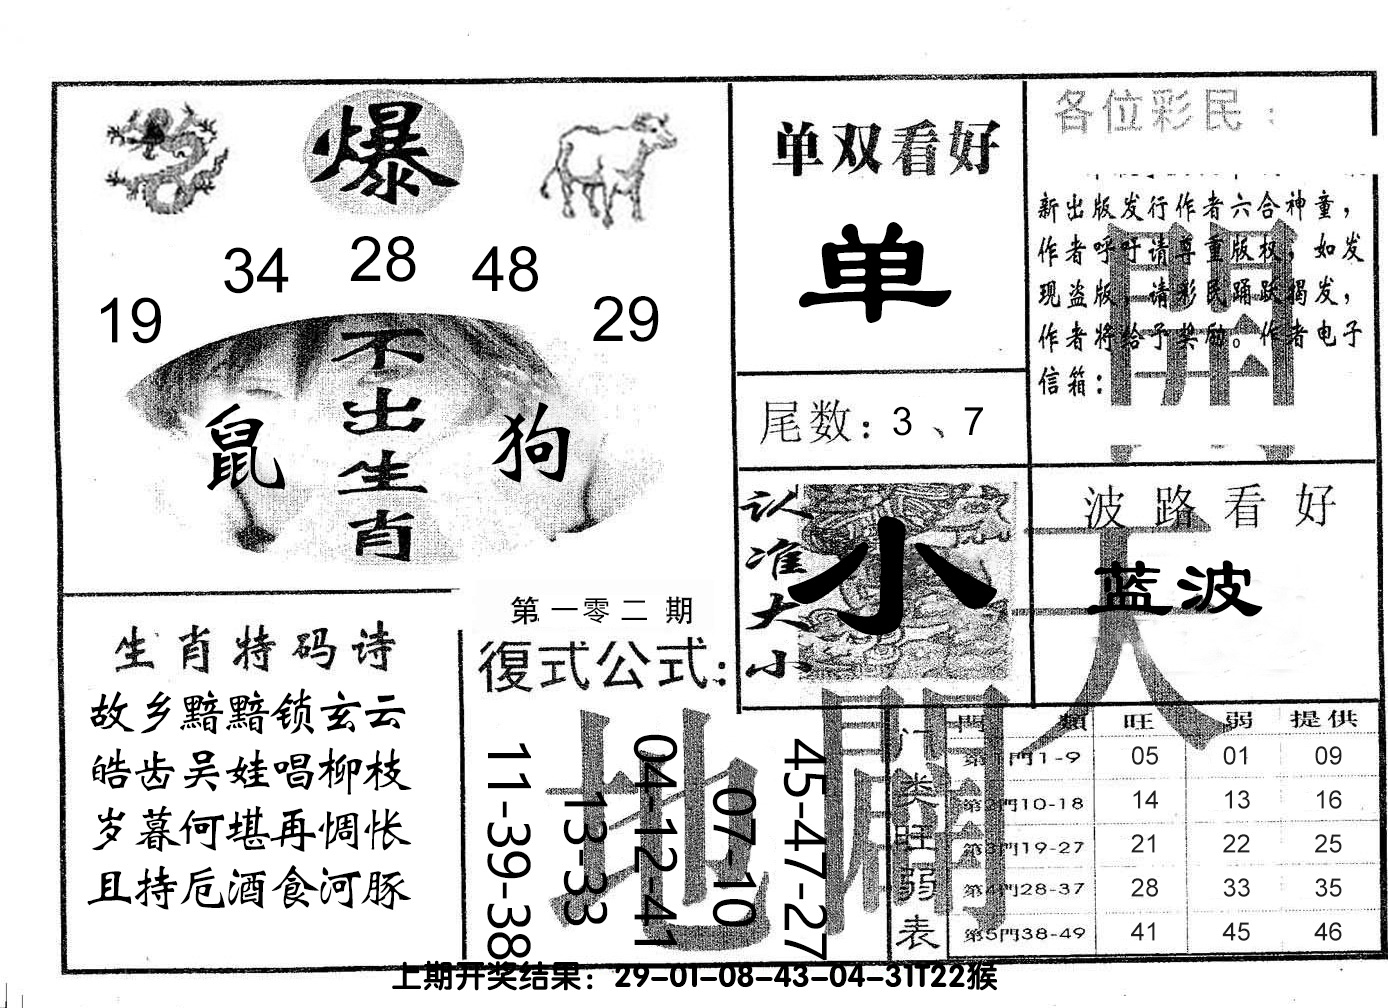 爆
34 28 48
19 29
不出生肖
鼠 狗
单双看好
单
尾数：3、7
认准大小
小
各位彩民：
新出版发行作者六合神童，
作者呼吁请尊重版权，如发
现盗版，请彩民踊跃揭发，
作者将给予奖励。作者电子
信箱：
波路看好
蓝波
天
地
生肖特码诗
故乡黯黯锁玄云
皓齿吴娃唱柳枝
岁暮何堪再惆怅
且持卮酒食河豚
第一零二期
復式公式：
11-39-38
13-33
04-12-41
07-10
45-47-27
门类旺弱表
門類 旺 弱 提供
第1門1-9 05 01 09
第2門10-18 14 13 16
第3門19-27 21 22 25
第4門28-37 28 33 35
第5門38-49 41 45 46
上期开奖结果：29-01-08-43-04-31T22猴